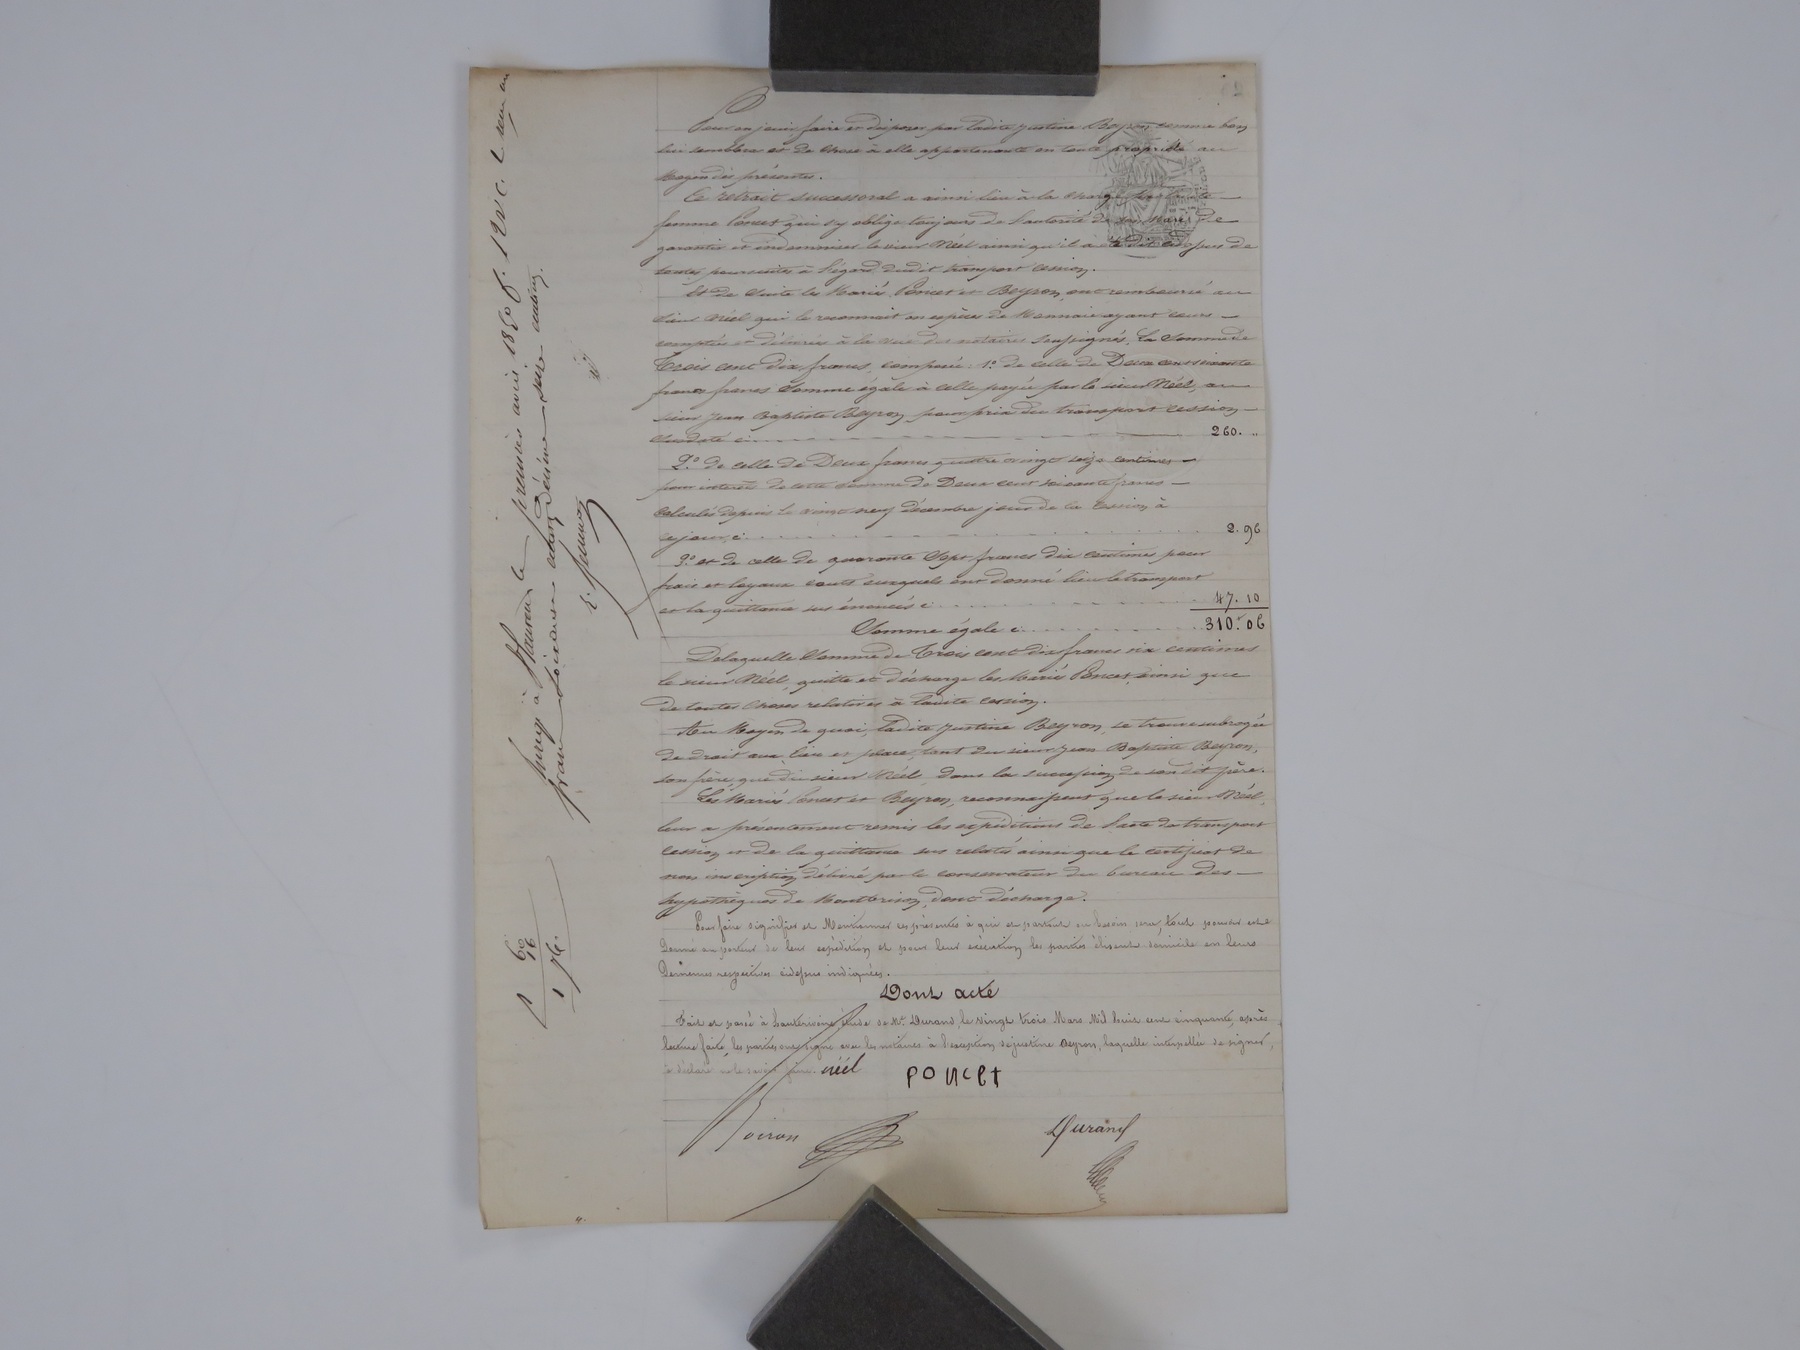 Pour en jouir faire et disposer par ladite Justine Beyron comme bon
lui semblera et de chose à elle appartenante en toute propriété au
Moyen des présentes.
Ce retrait successoral a ainsi lieu à la charge par ladite
femme Poncet qui s'y oblige toujours de l'autorité de son Mari de
garantir et indemniser le sieur Néel ainsi qu'il a été dit ci-dessus de
toutes poursuites à l'égard dudit transport cession.
Et de suite les Mariés Poncet et Beyron, ont remboursé au
sieur Néel qui le reconnait en espèces de Monnaie ayant cours
comptées et délivrées à la vue des notaires soussignés, La Somme de
Trois cent dix francs, composée: 1.º de celle de Deux cent soixante
francs francs Somme égale à celle payée par le sieur Néel, au
sieur Jean Baptiste Beyron, pour prix du transport cession
susdaté ci 260. "
2.º de celle de Deux francs quatre vingt seize centimes
pour intérêts de cette somme de Deux cent soixante francs
calculés depuis le vingt neuf décembre jour de la Cession à
ce jour, ci 2. 96
3.º et de celle de quarante Sept francs dix centimes pour
frais et loyaux couts auxquels ont donné lieu le transport
et la quittance sus énoncés ci 47. 10
Somme égale ci 310. 06
De laquelle Somme de Trois cent dix francs six centimes
le sieur Néel, quitte et décharge les Mariés Poncet, ainsi que
de toutes choses relatives à ladite cession.
Au Moyen de quoi, ladite Justine Beyron, se trouve subrogée
de droit aux lieu et place, tant du sieur Jean Baptiste Beyron,
son frère, que du sieur Néel dans la succession de son dit père.
Les Mariés Poncet et Beyron, reconnaissent que le sieur Néel,
leur a présentement remis les expéditions de l'acte de transport
cession et de la quittance sus relatés ainsi que le certificat de
non inscription délivré par le conservateur du bureau des
hypothèques de Montbrison, dont décharge.
Pour faire signifier et Mentionner ces présentes à qui et partout où besoin sera, tout pouvoir est
Donné au porteur de leur expédition et pour leur exécution les parties élisent domicile en leurs
Demeures respectives cidessus indiquées.
Dont acte
Fait et passé à hauterivoire étude de Me. Durand, le vingt trois Mars Mil huit cent cinquante, après
lecture faite, les parties ont signé avec les notaires à l'exception de justine Beyron, laquelle interpellée de signer,
a déclaré ne le savoir faire. Néel
Poncet
Boiron
Durand
à St Laurent le premier avril 1850 f. 12 v c. 2
francs soixante centimes
60
16
1 76.